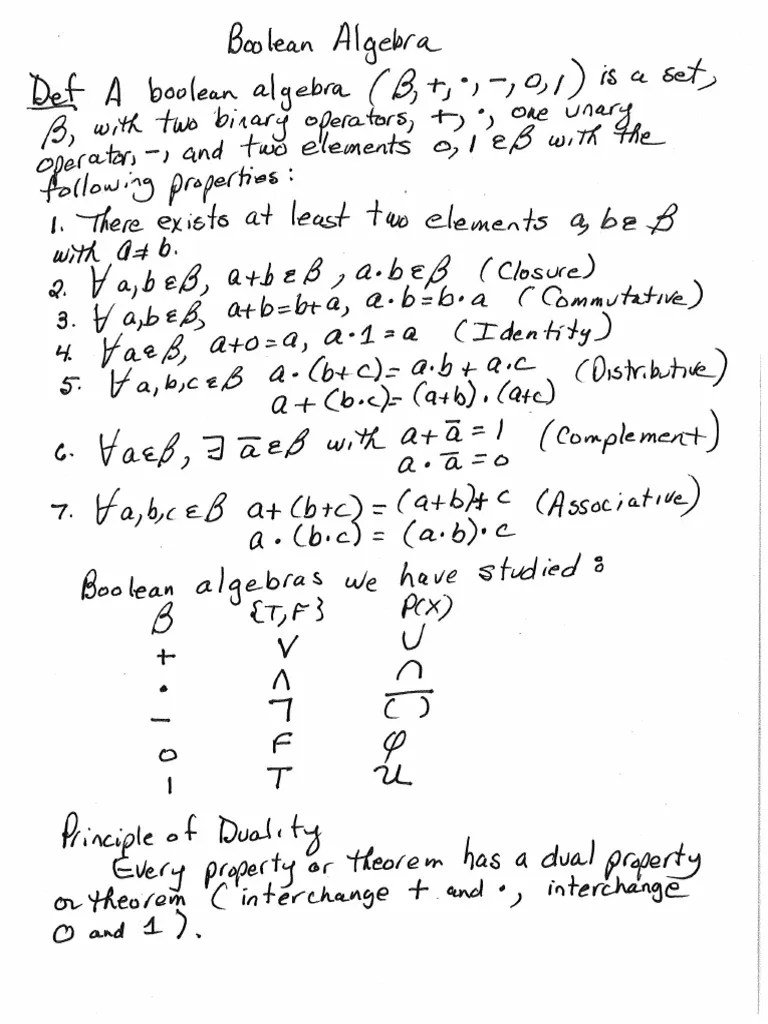 Boolean Algebra
Def A boolean algebra (β, +, ·, −, 0, 1) is a set,
β, with two binary operators, +, ·, one unary
operator, −, and two elements 0, 1 ε β with the
following properties:
1. There exists at least two elements a, b ε β
with a ≠ b.
2. ∀ a, b ε β, a+b ε β, a·b ε β (Closure)
3. ∀ a, b ε β, a+b = b+a, a·b = b·a (Commutative)
4. ∀ a ε β, a+0 = a, a·1 = a (Identity)
5. ∀ a, b, c ε β a·(b+c) = a·b + a·c (Distributive)
a+(b·c) = (a+b)·(a+c)
6. ∀ a ε β, ∃ ā ε β with a+ā = 1 (Complement)
a·ā = 0
7. ∀ a, b, c ε β a+(b+c) = (a+b)+c (Associative)
a·(b·c) = (a·b)·c
Boolean algebras we have studied:
β {T, F} P(X)
+ ∨ ∪
· ∧ ∩
− ¬ \overline{( )}
0 F φ
1 T U
Principle of Duality
Every property or theorem has a dual property
or theorem (interchange + and ·, interchange
0 and 1).